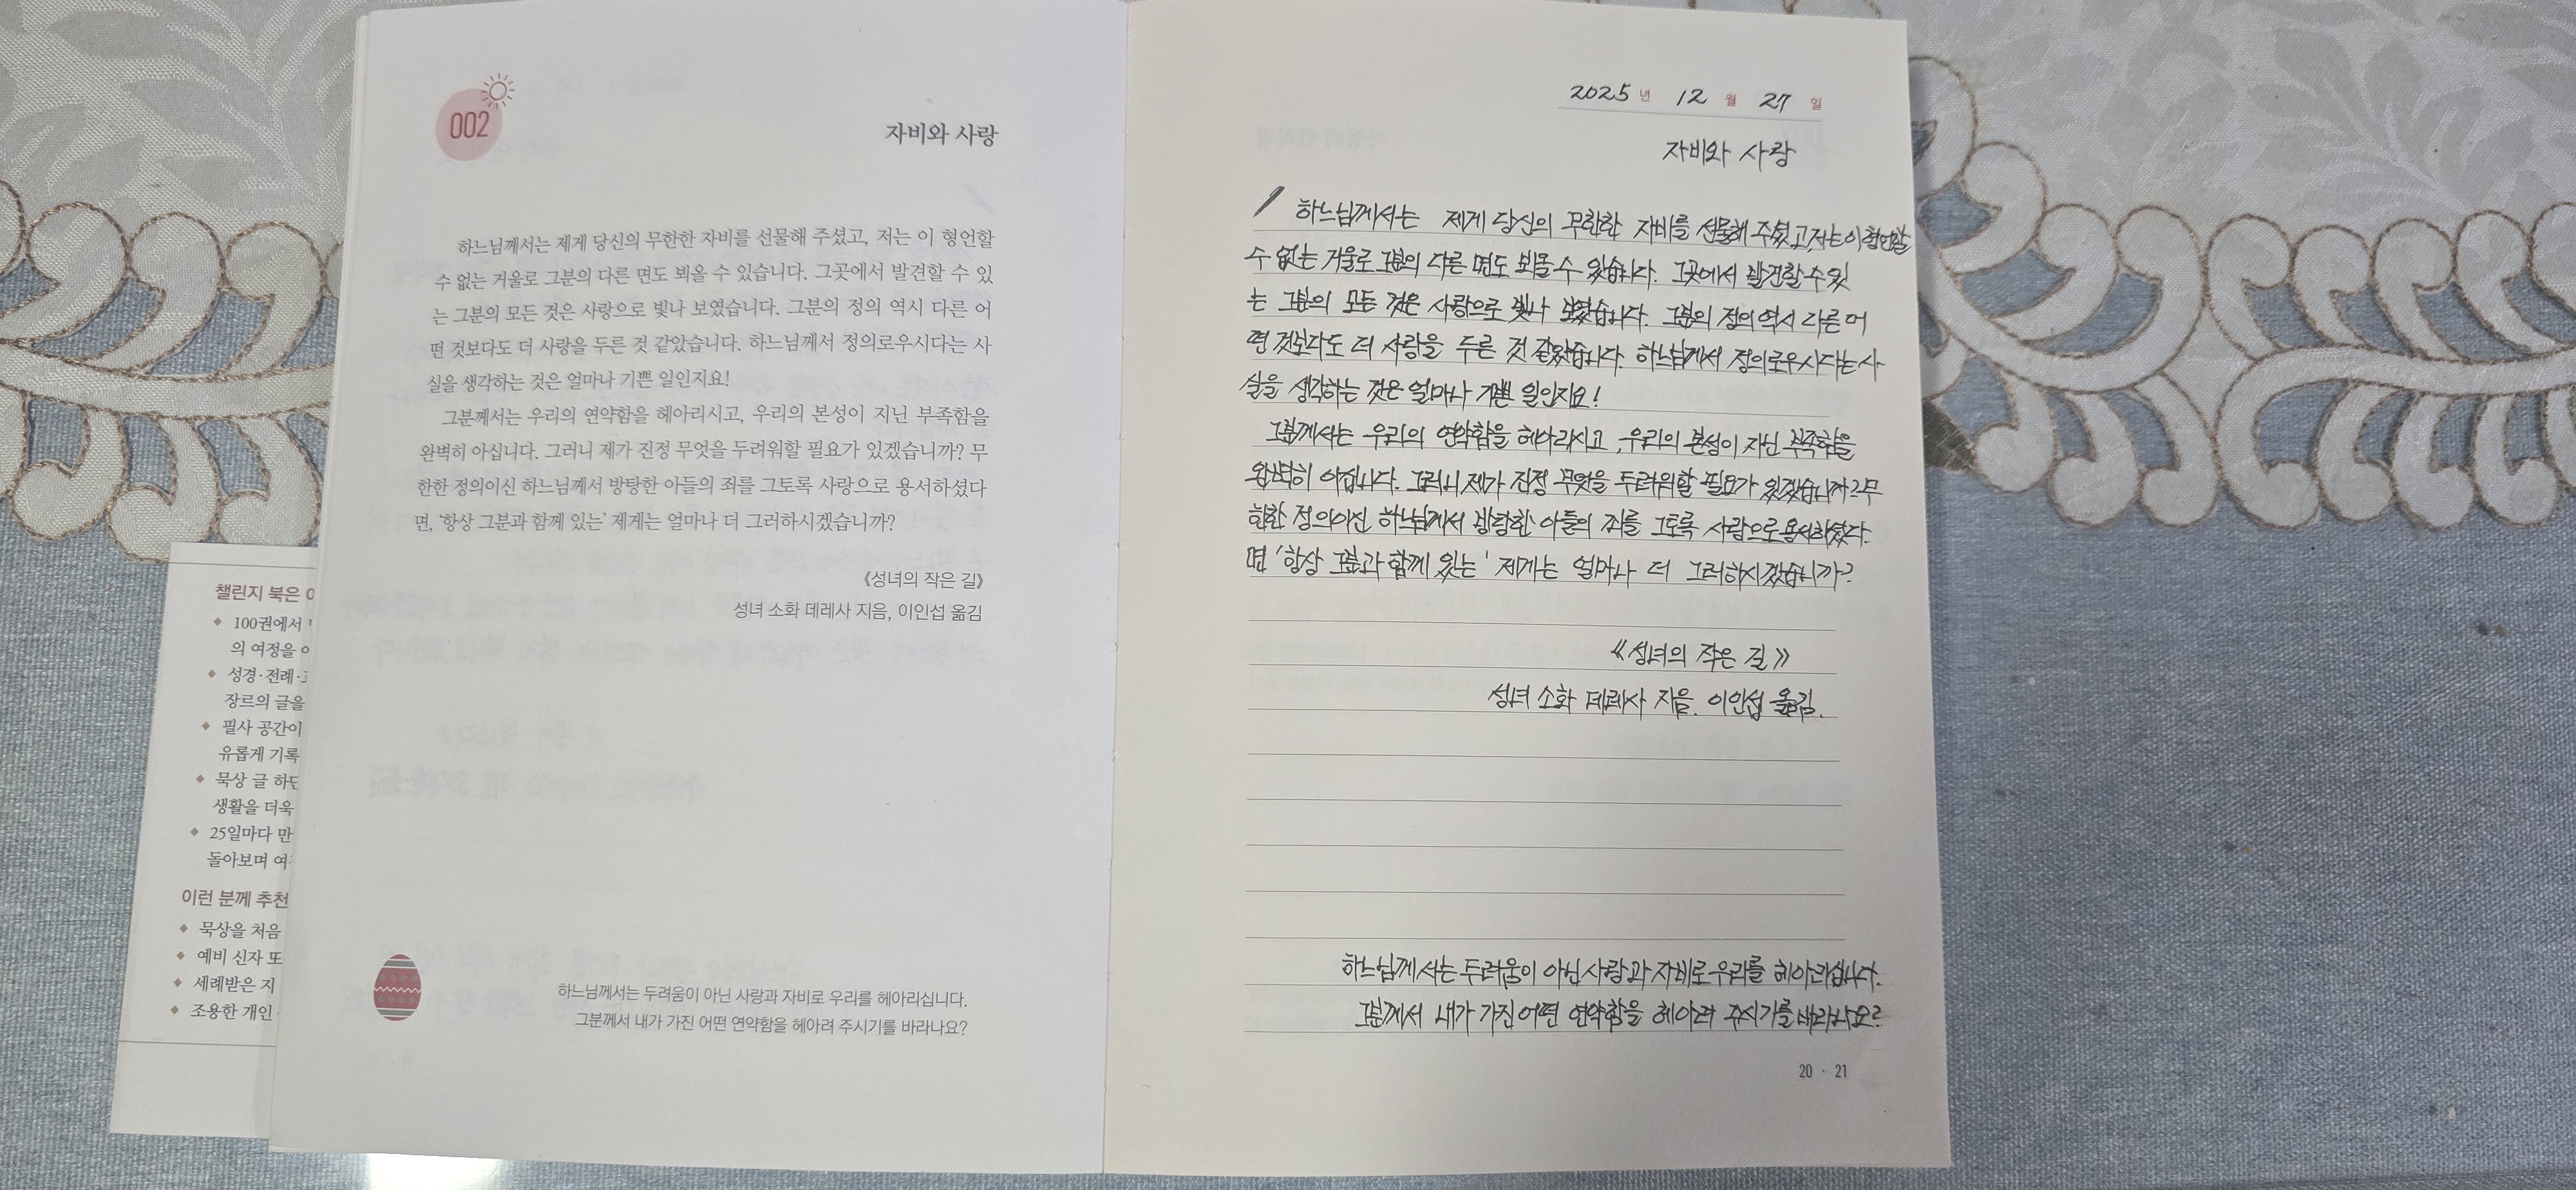 002
자비와 사랑
하느님께서는 제게 당신의 무한한 자비를 선물해 주셨고, 저는 이 형언할
수 없는 거울로 그분의 다른 면도 뵈올 수 있습니다. 그곳에서 발견할 수 있
는 그분의 모든 것은 사랑으로 빛나 보였습니다. 그분의 정의 역시 다른 어
떤 것보다도 더 사랑을 두른 것 같았습니다. 하느님께서 정의로우시다는 사
실을 생각하는 것은 얼마나 기쁜 일인지요!
그분께서는 우리의 연약함을 헤아리시고, 우리의 본성이 지닌 부족함을
완벽히 아십니다. 그러니 제가 진정 무엇을 두려워할 필요가 있겠습니까? 무
한한 정의이신 하느님께서 방탕한 아들의 죄를 그토록 사랑으로 용서하셨다
면, ‘항상 그분과 함께 있는’ 제게는 얼마나 더 그러하시겠습니까?
《성녀의 작은 길》
성녀 소화 데레사 지음, 이인섭 옮김
하느님께서는 두려움이 아닌 사랑과 자비로 우리를 헤아리십니다.
그분께서 내가 가진 어떤 연약함을 헤아려 주시기를 바라나요?
챌린지 북은
100권에서
의 여정을
성경·전례·
장르의 글을
필사 공간이
유롭게 기록
묵상 글 하단
생활을 더욱
25일마다 만
돌아보며
이런 분께 추천
묵상을 처음
예비 신자 또
세례받은 지
조용한 개인
2025년 12월 27일
자비와 사랑
하느님께서는 제게 당신의 무한한 자비를 선물해 주셨고, 저는 이 형언할
수 없는 거울로 그분의 다른 면도 뵈올 수 있습니다. 그곳에서 발견할 수 있
는 그분의 모든 것은 사랑으로 빛나 보였습니다. 그분의 정의 역시 다른 어
떤 것보다도 더 사랑을 두른 것 같았습니다. 하느님께서 정의로우시다는 사
실을 생각하는 것은 얼마나 기쁜 일인지요!
그분께서는 우리의 연약함을 헤아리시고, 우리의 본성이 지닌 부족함을
완벽히 아십니다. 그러니 제가 진정 무엇을 두려워할 필요가 있겠습니까? 무
한한 정의이신 하느님께서 방탕한 아들의 죄를 그토록 사랑으로 용서하셨다.
면 ‘항상 그분과 함께 있는’ 제게는 얼마나 더 그러하시겠습니까?
《성녀의 작은 길》
성녀 소화 데레사 지음. 이인섭 옮김.
하느님께서는 두려움이 아닌 사랑과 자비로 우리를 헤아리십니다.
그분께서 내가 가진 어떤 연약함을 헤아려 주시기를 바라나요?
20 · 21